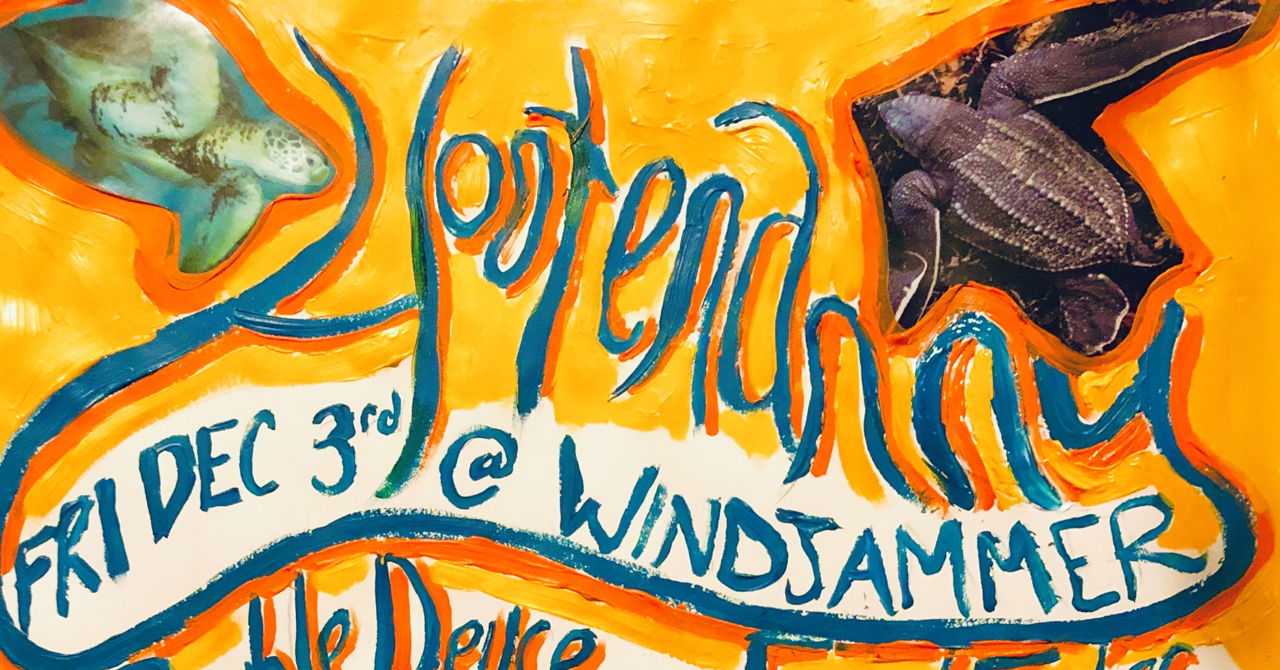 Hootenanny
FRI DEC 3rd @ WINDJAMMER
Deuce